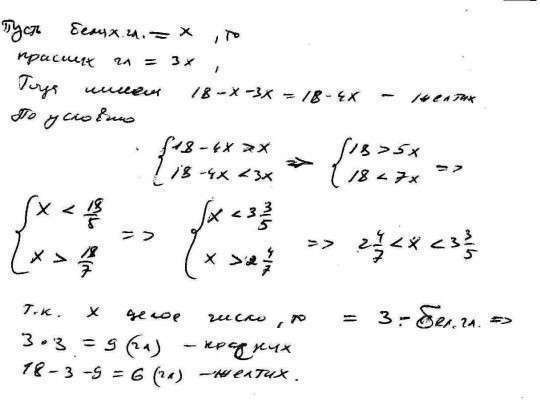 Пусть белых гл. = x, то
красных гл = 3x,
Тогда имеем 18-x-3x = 18-4x - желтых
По условию
{18-4x > x
18-4x < 3x => {18 > 5x
18 < 7x =>
{x < 18/5
x > 18/7 => {x < 3 3/5
x > 2 4/7 => 2 4/7 < x < 3 3/5
т.к. x целое число, то = 3 - бел. гл. =>
3·3 = 9 (гл) - красных
18-3-9 = 6 (гл) - желтых.